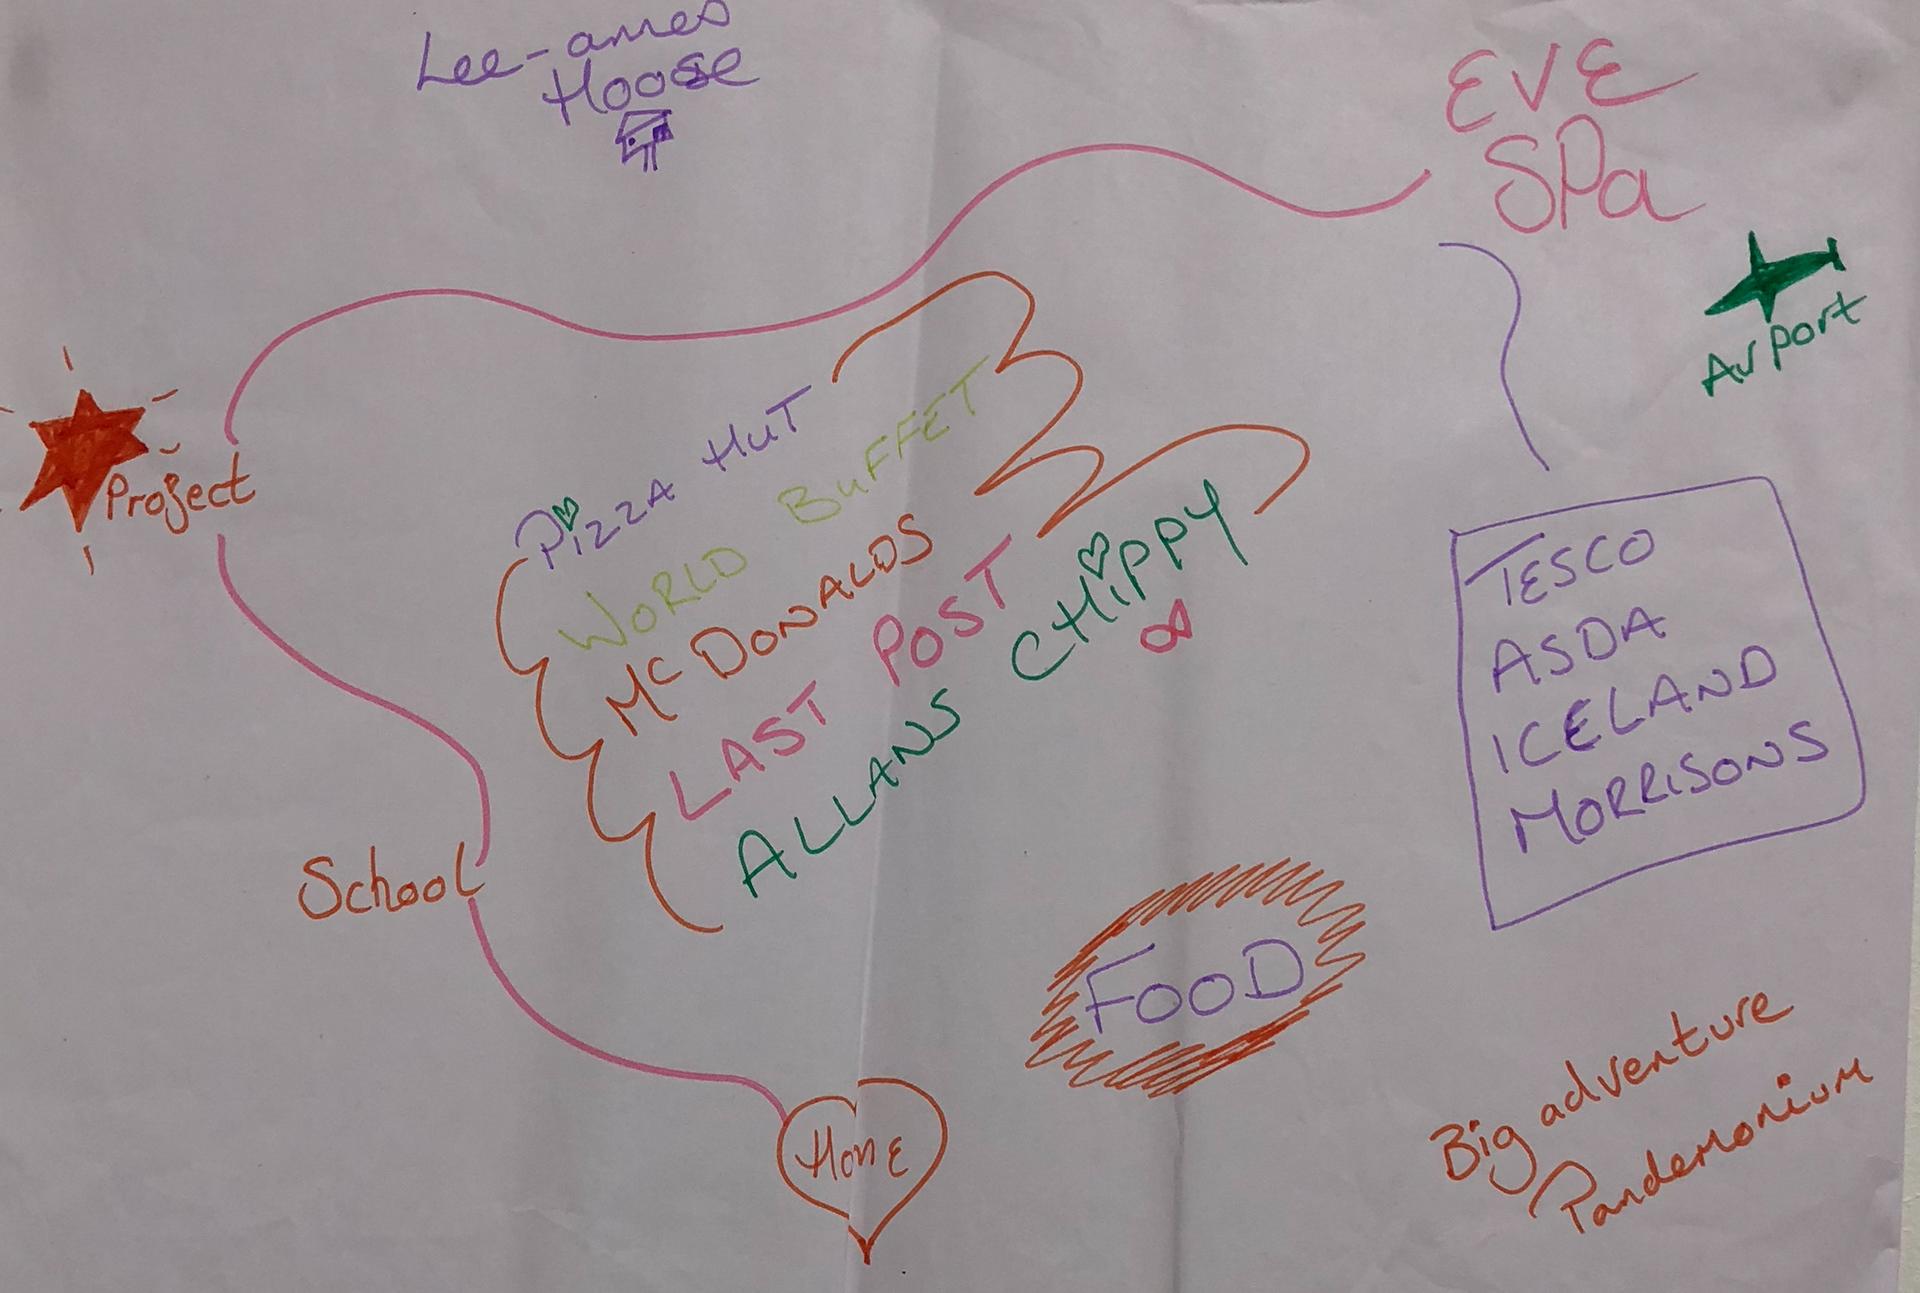 Lee-annes
Hoose
EVE
SPa
Airport
Project
PiZZA HuT
WORLD BuFFET
McDONALDS
LAST POST
ALLANS CHiPPY
TESCO
ASDA
ICELAND
MORRISONS
School
FOOD
Home
Big adventure
Pandemonium